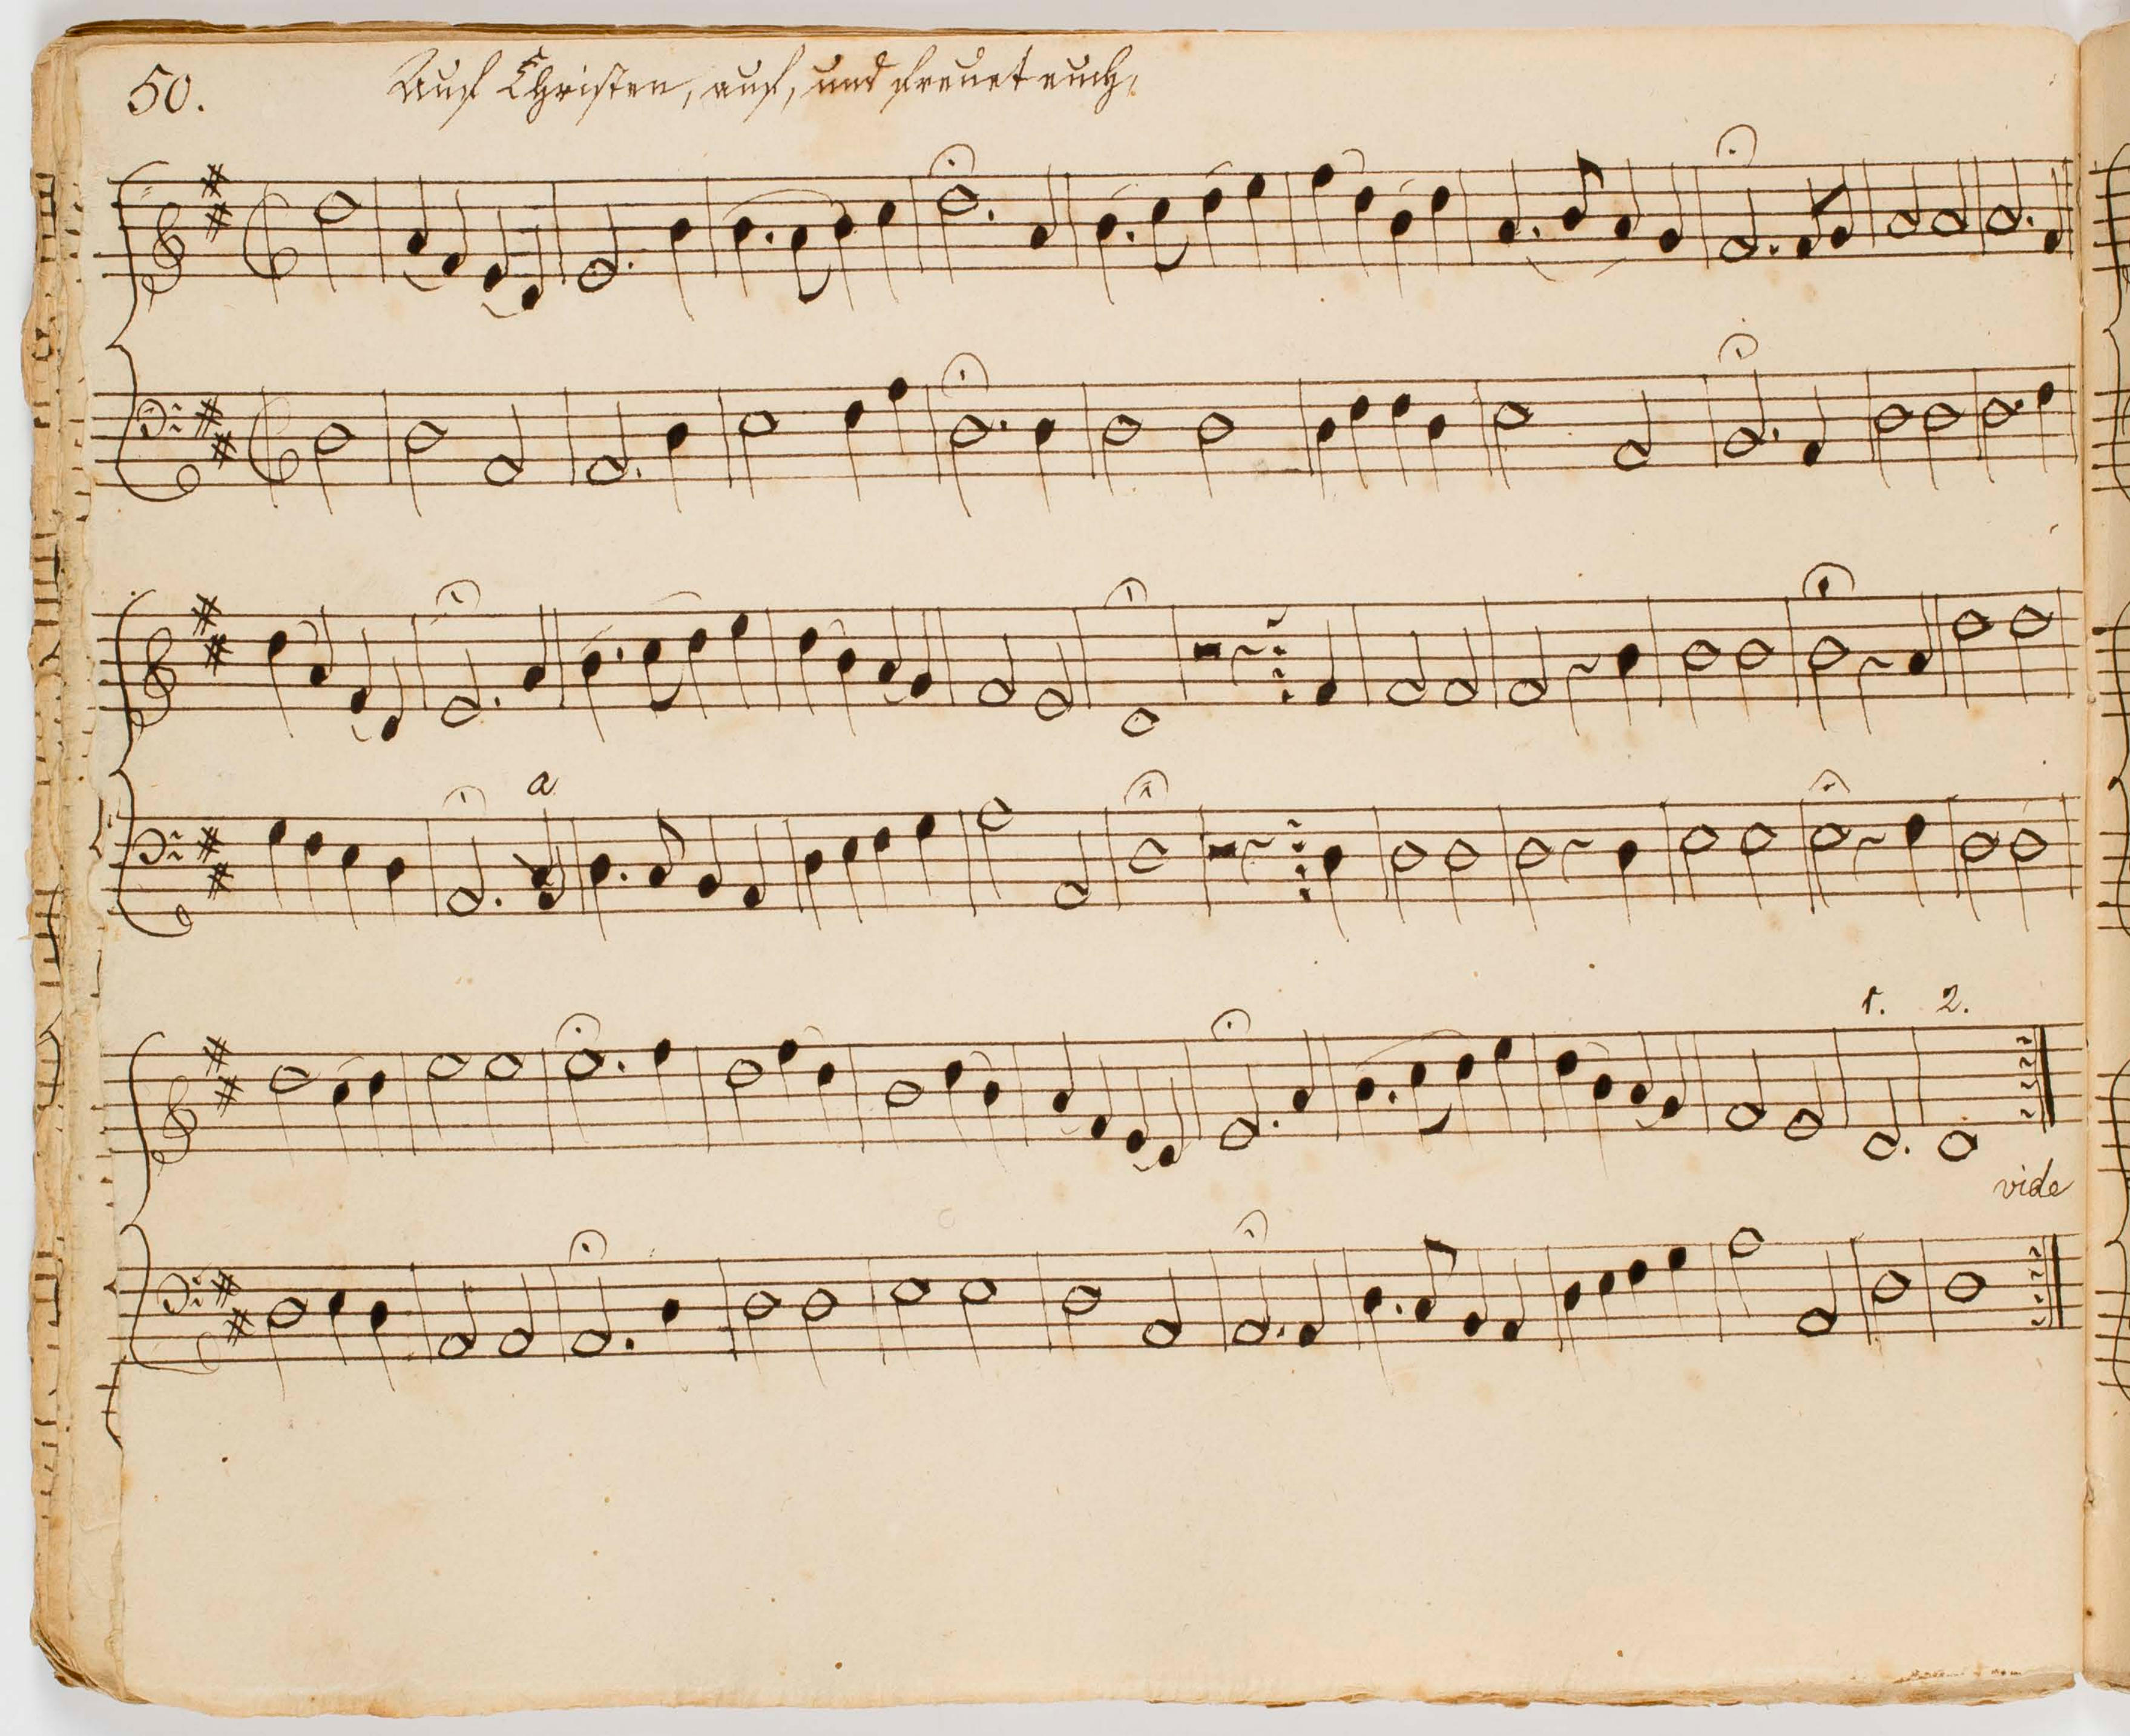 50. Auf Christen, auf, und freuet euch,
a
1. 2.
vide